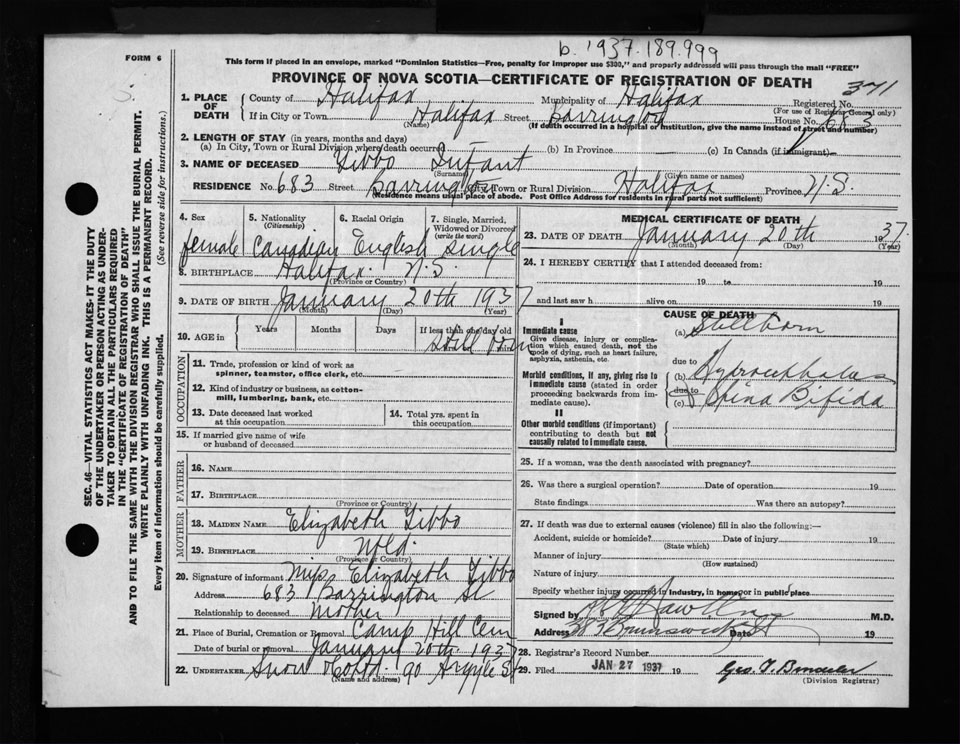 b. 1937.189.999
FORM 6
This form if placed in an envelope, marked "Dominion Statistics—Free, penalty for improper use $300," and properly addressed will pass through the mail "FREE"
PROVINCE OF NOVA SCOTIA—CERTIFICATE OF REGISTRATION OF DEATH
371
1. PLACE OF DEATH
County of Halifax Municipality of Halifax Registered No.
(For use of Registrar General only)
If in City or Town Halifax Street Barrington House No. 683
(Name)
(If death occurred in a hospital or institution, give the name instead of street and number)
2. LENGTH OF STAY (in years, months and days)
(a) In City, Town or Rural Division where death occurred (b) In Province (c) In Canada (if immigrant)
3. NAME OF DECEASED Tibbo Infant
(Surname) (Given name or names)
RESIDENCE No. 683 Street Barrington City, Town or Rural Division Halifax Province N.S.
(Residence means usual place of abode. Post Office Address for residents in rural parts not sufficient)
4. Sex
female
5. Nationality
(Citizenship)
Canadian
6. Racial Origin
English
7. Single, Married, Widowed or Divorced
(write the word)
Single
8. BIRTHPLACE Halifax. N.S.
(Province or Country)
9. DATE OF BIRTH January 20th 1937
(Month) (Day) (Year)
10. AGE in
Years Months Days If less than one day old
Still born
OCCUPATION
11. Trade, profession or kind of work as spinner, teamster, office clerk, etc.
12. Kind of industry or business, as cotton-mill, lumbering, bank, etc.
13. Date deceased last worked at this occupation
14. Total yrs. spent in this occupation
15. If married give name of wife or husband of deceased
FATHER
16. NAME
17. BIRTHPLACE
(Province or Country)
MOTHER
18. MAIDEN NAME Elizabeth Tibbo
19. BIRTHPLACE Nfld.
(Province or Country)
20. Signature of informant Miss Elizabeth Tibbo
Address 683 Barrington St
Relationship to deceased Mother
21. Place of Burial, Cremation or Removal Camp Hill Cem
Date of burial or removal January 20th. 1937
22. UNDERTAKER Snow &amp; Co Ltd. 90 Argyle St
(Name and address)
MEDICAL CERTIFICATE OF DEATH
23. DATE OF DEATH January 20th 1937.
(Month) (Day) (Year)
24. I HEREBY CERTIFY that I attended deceased from:
19 to 19
and last saw h alive on 19
CAUSE OF DEATH
I
Immediate cause
Give disease, injury or complication which caused death, not the mode of dying, such as heart failure, asphyxia, asthenia, etc.
(a) Stillborn
due to
Morbid conditions, if any, giving rise to immediate cause (stated in order proceeding backwards from immediate cause).
(b) Hydrocephalus
due to
(c) Spina Bifida
II
Other morbid conditions (if important) contributing to death but not causally related to immediate cause.
25. If a woman, was the death associated with pregnancy?
26. Was there a surgical operation? Date of operation 19
State findings Was there an autopsy?
27. If death was due to external causes (violence) fill in also the following:—
Accident, suicide or homicide? Date of injury 19
(State which)
Manner of injury
(How sustained)
Nature of injury
Specify whether injury occurred in Industry, in home, or in public place
Signed by M.D.
Address 383 Brunswick St Date 19
28. Registrar's Record Number
29. Filed JAN 27 1937 19
(Division Registrar)
SEC. 46—VITAL STATISTICS ACT MAKES IT THE DUTY
OF THE UNDERTAKER OR PERSON ACTING AS UNDER-
TAKER TO OBTAIN ALL THE PARTICULARS REQUIRED
IN THE "CERTIFICATE OF REGISTRATION OF DEATH"
AND TO FILE THE SAME WITH THE DIVISION REGISTRAR WHO SHALL ISSUE THE BURIAL PERMIT.
WRITE PLAINLY WITH UNFADING INK. THIS IS A PERMANENT RECORD.
Every item of information should be carefully supplied. (See reverse side for instructions.)